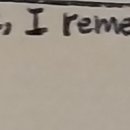 , I reme